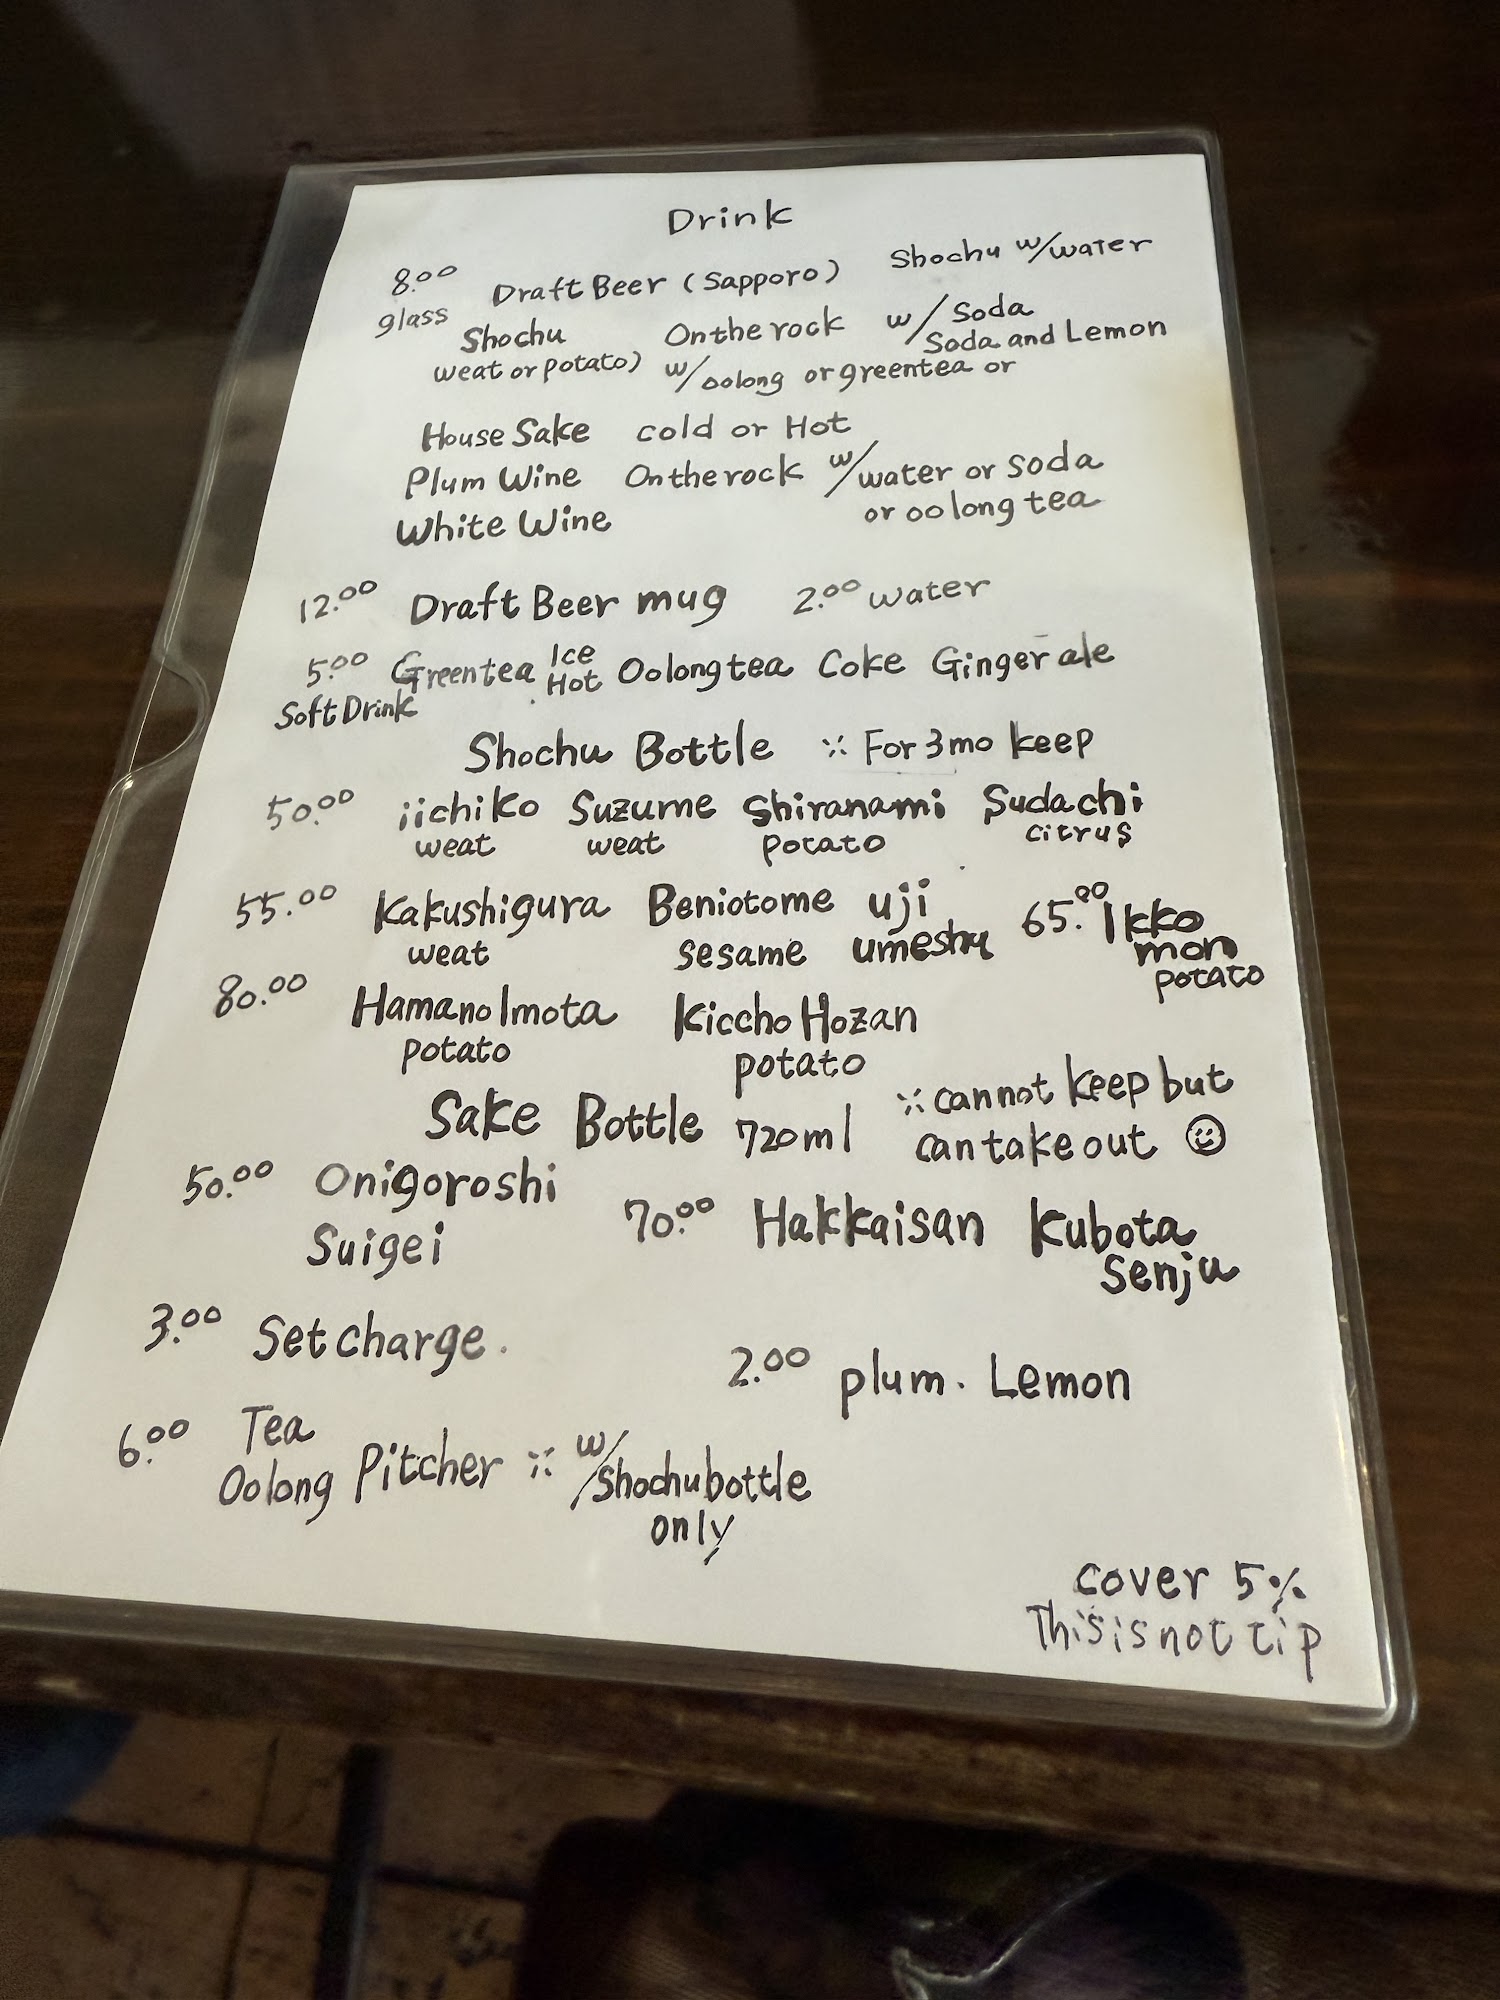 Drink
8.00 Draft Beer (Sapporo) Shochu w/water
glass Shochu On the rock w/ Soda
Soda and Lemon
weat or potato) w/oolong or greentea or
House Sake cold or Hot
Plum Wine On the rock w/water or soda
White Wine or oolong tea
12.00 Draft Beer mug 2.00 water
5.00 Greentea Ice Hot Oolongtea Coke Ginger ale
Soft Drink
Shochu Bottle ※ For 3mo keep
50.00 iichiko Suzume Shiranami Sudachi
weat weat potato citrus
55.00 Kakushigura Beniotome uji 65.00 Ikko
weat sesame umeshu mon
potato
80.00 Hamano Imota Kiccho Hozan
potato potato
Sake Bottle 720ml ※ cannot keep but
can take out ☺
50.00 Onigoroshi 70.00 Hakkaisan Kubota
Suigei Senju
3.00 Set charge.
2.00 plum. Lemon
6.00 Tea
Oolong Pitcher ※ w/shochu bottle
only
cover 5%
This is not tip